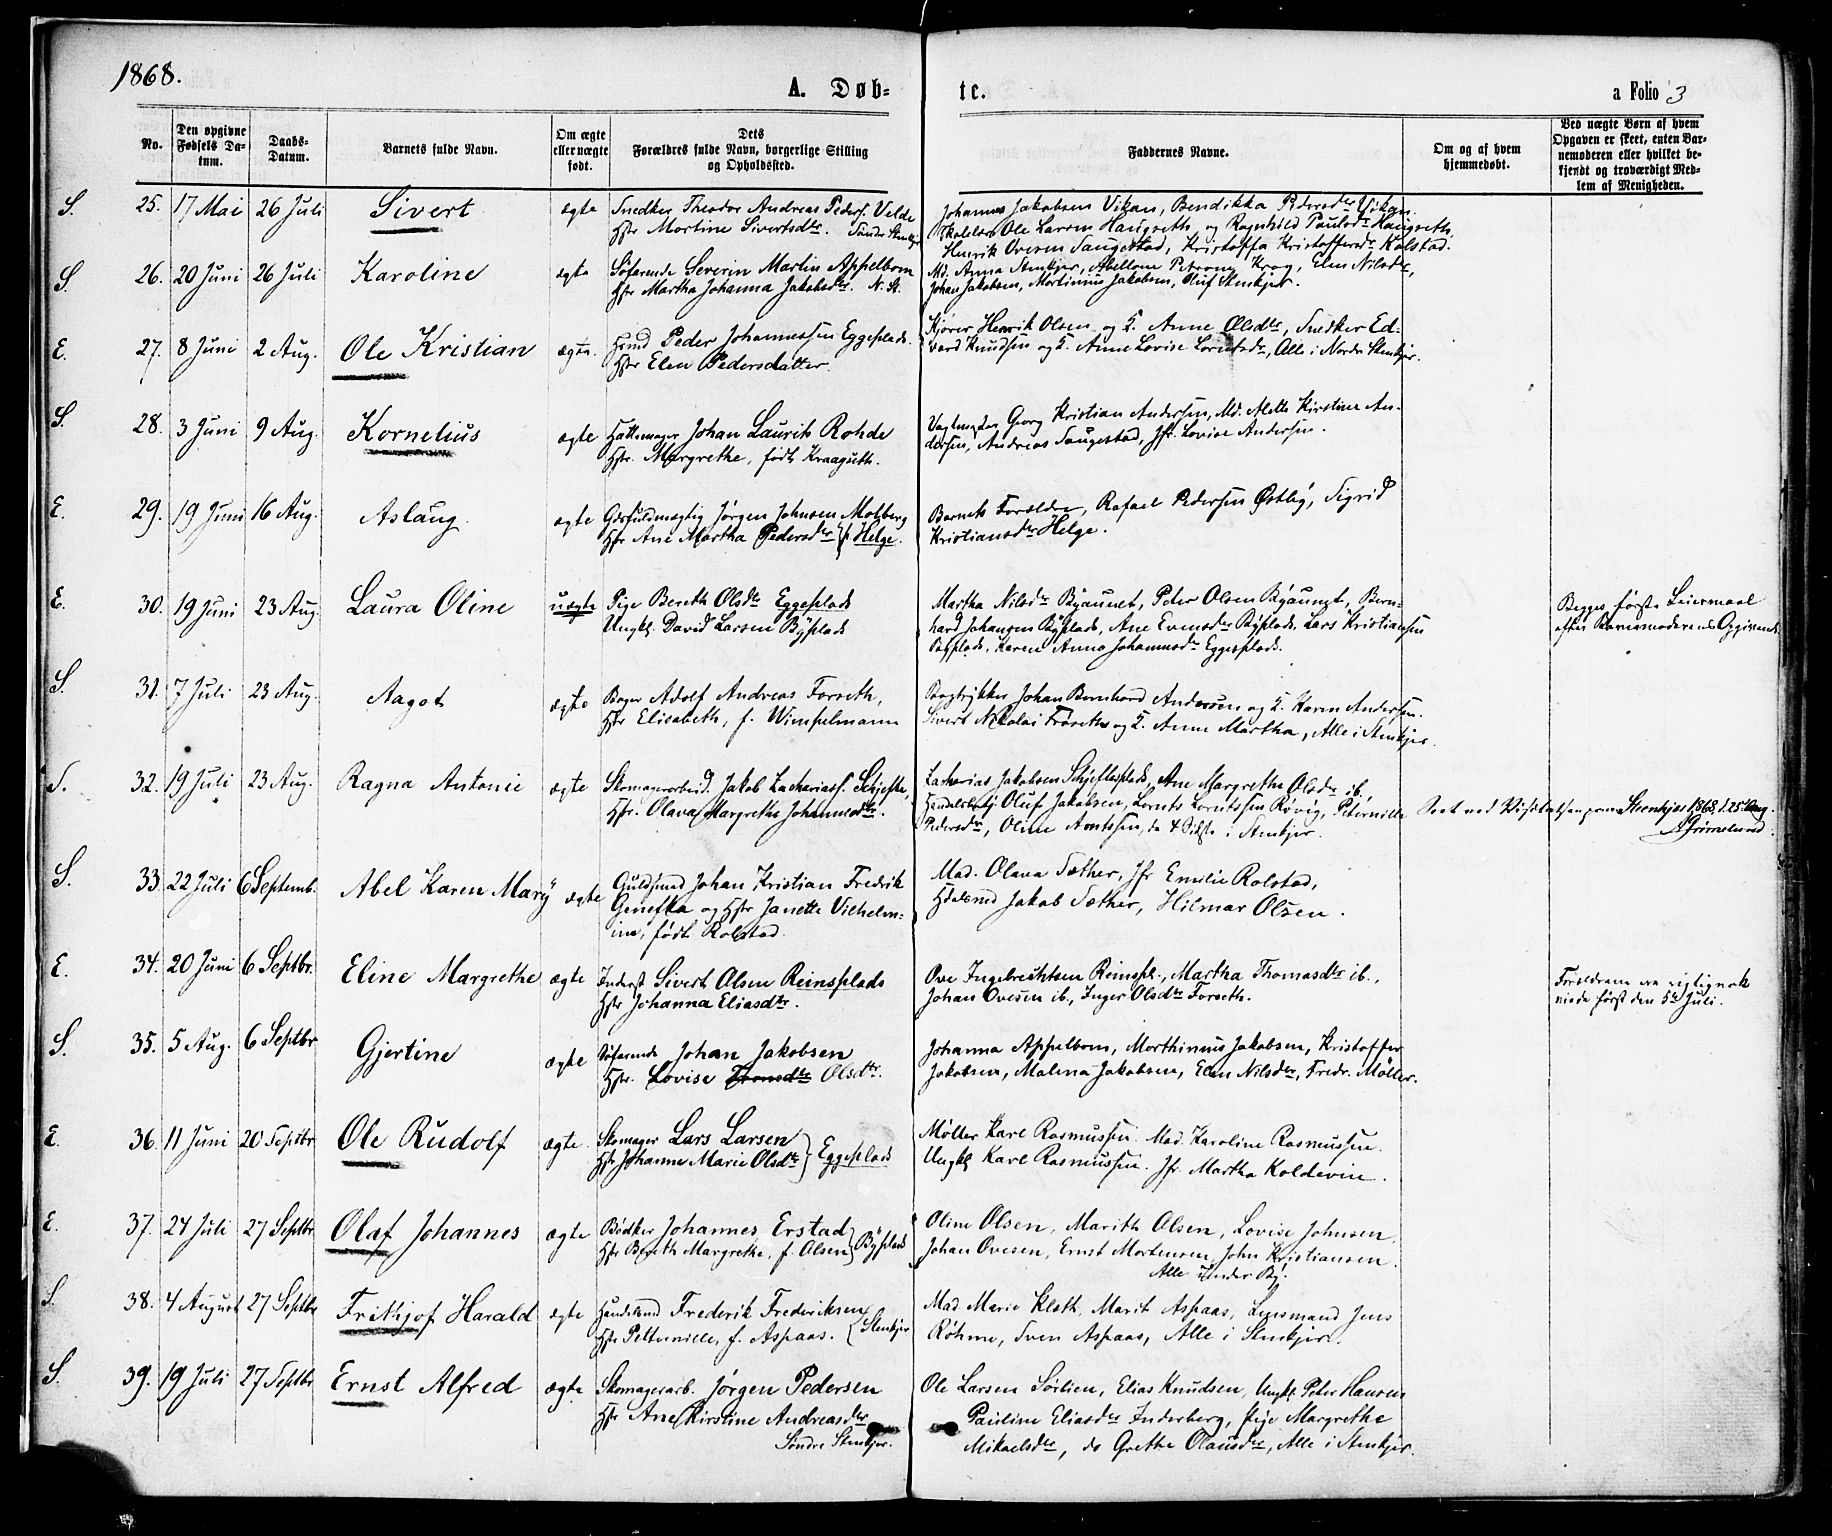 1868.
A. Døb-
te.
a Folio 3
No.
Den opgivne Fødsels Da-tum.
Daabs-Datum.
Barnets fulde Navn.
Om ægte eller uægte født.
Dets Forældres fulde Navn, borgerlige Stilling og Opholdssted.
Faddernes Navne.
Om og af hvem hjemmedøbt.
Ved uægte Børn af hvem Opgaven er skeet, enten Bar-nemoderen eller hvilket be-kjendt og troværdigt Med-lem af Menigheden.
S. 25. 17 Mai 26 Juli Sivert ægte Snedker Theodor Andreas Peders. Velde
Hstr Mortine Sivertsdtr. Søndre Stenkjer
Johannes Jakobsen Vikan, Bendikka Pedersdtr Vikan.
Ole Larsen Haugseth og Ragnhild Paulsdtr Haugseth,
Henrik Ovesen Saugestad, Kristoffa Kristoffersdtr Kolstad.
S. 26. 20 Juni 26 Juli Karoline ægte Søfarende Severin Martin Appelbom
Hstr Martha Johanna Jakobsdtr. N. St.
Md. Anna Stenkjer, Abellone Petrone Krog, Elen Nilsdtr,
Johan Jakobsen, Mortinus Jakobsen, Oluf Stenkjer.
E. 27. 8 Juni 2 Aug. Ole Kristian ægte. Hsmd Peder Johannessen Eggesplads.
Hstr Elen Pedersdatter.
Kjører Henrik Olsen og K. Anne Olsdtr, Snedker Ed-
vard Knudsen og K. Anne Lovise Lorntsdr, Alle i Nordre Stenkjer.
S. 28. 3 Juni 9 Aug. Kornelius ægte Hattemager Johan Laurits Rohde
Hstr. Margrethe, født Kraagseth.
Georg Kristian Andersen, Md. Alette Kirstine An-
dersen, Andreas Saugestad, Jfr. Lovise Andersen.
E. 29. 19 Juni 16 Aug. Aslaug. ægte Gbrfuldmægtig Jørgen Johnsen Molberg
Hstr Ane Martha Pedersdtr } p Helge.
Barnets Forældre, Rafael Pedersen Østby, Sigrid
Kristiansdtr Helge.
E. 30. 19 Juni 23 Aug. Laura Oline uægte Pige Bereth Olsdtr Eggesplads
Ungkl. David Larsen Byplads
Martha Nilsdtr Byaunet, Peter Olsen Byaunet, Bern-
hard Johansen Byplads, Ane Evensdtr Byplads. Lars Kristiansen
Byplads, Karen Anna Johannesdr Eggesplads.
Begges første Leiermaal
efter Barnemoderens Opgivende.
S. 31. 7 Juli 23 Aug. Aagot ægte Bager Adolf Andreas Forseth,
Hstr Elisabeth, f. Wimpelmann
Bogtrykker Johan Bernhard Andersen og K. Karen Andersen.
Sivert Nikolai Forseth og K. Anne Martha, Alle i Stenkjer.
S. 32. 19 Juli 23 Aug. Ragna Antonie ægte Skomagerarbeid. Jakob Zachariass. Schjefte,
Hstr. Olava Margrethe Johannesdtr.
Zacharias Jakobsen Schjefteplads, Ane Margrethe Olsdtr ib.,
Oluf Jakobsen, Lornts Lorntssen Røvig, Peternille
Pedersdtr, Oline Arntssen, de 4 Sidste i Stenkjer.
Seet ved Visitatsen paa Steenkjær 1868 d. 25 Aug.
Grimelund.
S. 33. 22 Juli 6 Septemb. Abel Karen Mary ægte Guldsmed Johan Kristian Fredrik
Genefka og Hstr Janette Vilhelm-
ine, født Rolstad
Mad. Olava Sæther, Jfr Emilie Rolstad,
Hdelsmd Jakob Sæther, Hilmar Olsen.
E. 34. 20 Juni 6 Septbr. Eline Margrethe ægte Inderst Sivert Olsen Reinsplads
Hstr Johanna Eliasdtr.
Ove Ingebrechtsen Reinspl., Martha Thomasdtr ib.,
Johan Ovesen ib., Inger Olsdtr Forseth.
Forældrene ere rigtignok
viede først den 5te Juli.
S. 35. 5 Aug. 6 Septbr Gjertine ægte Søfarende Johan Jakobsen
Hstr. Lovise Olsdtr.
Johanna Appelbom, Morthinus Jakobsen, Kristoffer
Jakobsen, Malena Jakobsen, Elen Nilsdtr, Fredr. Møller.
E. 36. 11 Juni 20 Septbr Ole Rudolf ægte. Skomager Lars Larsen
Hstr Johanne Marie Olsdtr } Eggesplads
Møller Karl Rasmussen. Mad. Karoline Rasmussen.
Ungkl Karl Rasmussen. Jfr. Martha Koldevin.
E. 37. 24 Juli 27 Septbr. Olaf Johannes ægte Bødker Johannes Erstad
Hstr Bereth Margrethe, f. Olsen } Byplads
Oline Olsen, Marith Olsen, Lovise Johnsen,
Johan Ovesen, Ernst Mortensen, John Kristiansen.
Alle under By.
S. 38. 4 August 27 Septbr Frithjof Harald ægte Handelsmd Frederik Frederiksen
Hstr Petternille, f. Aspaas. { Stenkjer
Mad Marie Kloth, Marit Aspaas, Lensmand Jens
Røhme, Sven Aspaas, Alle i Stenkjer.
S. 39. 19 Juli 27 Septbr Ernst Alfred ægte Skomagerarb. Jørgen Pedersen
Hstr Ane Kirstine Andreasdtr
Søndre Stenkjer.
Ole Larsen Sørlien, Elias Knudsen, Ungkl. Peter Hansen
Pauline Eliasdtr Inderberg, Pige Margrethe
Mikaelsdtr, do Grethe Olausdtr, Alle i Stenkjer.